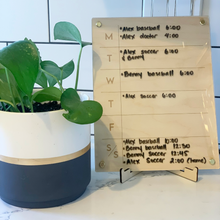 M
• Alex baseball 6:00
• Alex doctor 4:00
T
• Alex soccer 6:00
& Benny
W
• Benny baseball 6:00
T
• Alex soccer 6:00
F
S
• Alex baseball 10:00
• Benny baseball 12:30
S
• Benny soccer 12:45
• Alex soccer 2:00 (home)